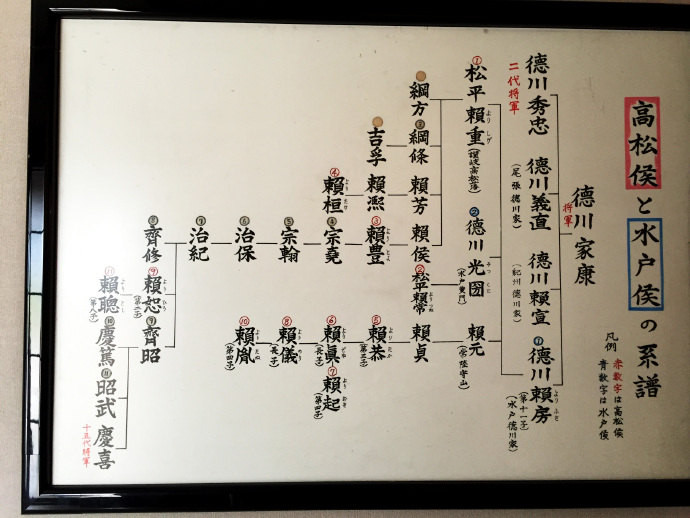 高松侯と水戸侯の系譜
凡例
赤数字は高松侯
青数字は水戸侯
徳川家康
将軍
徳川秀忠
二代将軍
徳川義直
(尾張徳川家)
徳川頼宣
(紀州徳川家)
①徳川頼房
よりふさ
(第十一子)
(水戸徳川家)
①松平頼重
よりしげ
(讃岐高松藩)
②徳川光圀
みつくに
(水戸黄門)
頼元
(常陸守山)
綱方
③綱條
頼芳
頼侯
②松平頼常
頼貞
吉孚
頼凞
③頼豊
⑤頼恭
(第五子)
④頼桓
④宗堯
⑥頼真
(長子)
⑦頼起
(第四子)
⑤宗翰
⑧頼儀
(長子)
⑥治保
⑩頼胤
(第四子)
⑦治紀
⑧齊修
⑨頼恕
(第二子)
⑨齊昭
⑪頼聰
(第八子)
⑩慶篤
⑪昭武
慶喜
十五代将軍